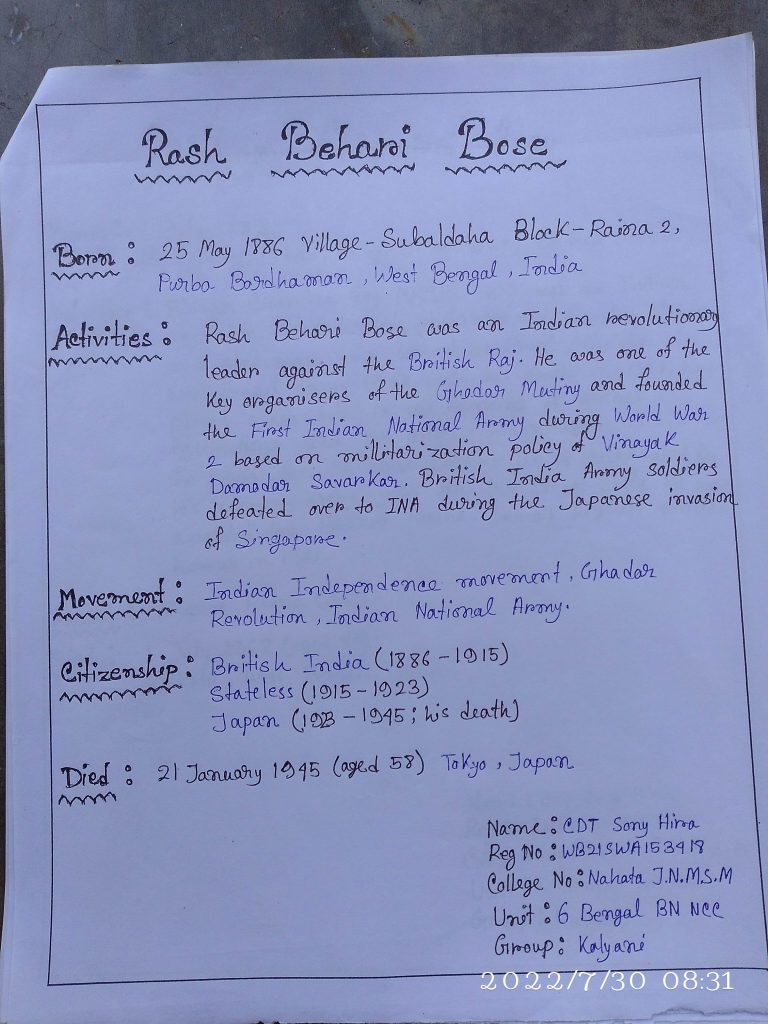 Rash Behari Bose
Born : 25 May 1886 Village - Subaldaha Block - Raina 2,
Purba Bardhaman, West Bengal, India
Activities : Rash Behari Bose was an Indian revolutionary
leader against the British Raj. He was one of the
Key organisers of the Ghadar Mutiny and founded
the First Indian National Army during World War
2 based on millitarization policy of Vinayak
Damodar Savarkar. British India Army soldiers
defeated over to INA during the Japanese invasion
of Singapore.
Movement : Indian Independence movement, Ghadar
Revolution, Indian National Army.
Citizenship : British India (1886 - 1915)
Stateless (1915 - 1923)
Japan (1923 - 1945; his death)
Died : 21 January 1945 (aged 58) Tokyo, Japan
Name : CDT Sony Hira
Reg No : WB21SWA153418
College No : Nahata J.N.M.S.M
Unit : 6 Bengal BN NCC
Group : Kalyani
2022/7/30 08:31